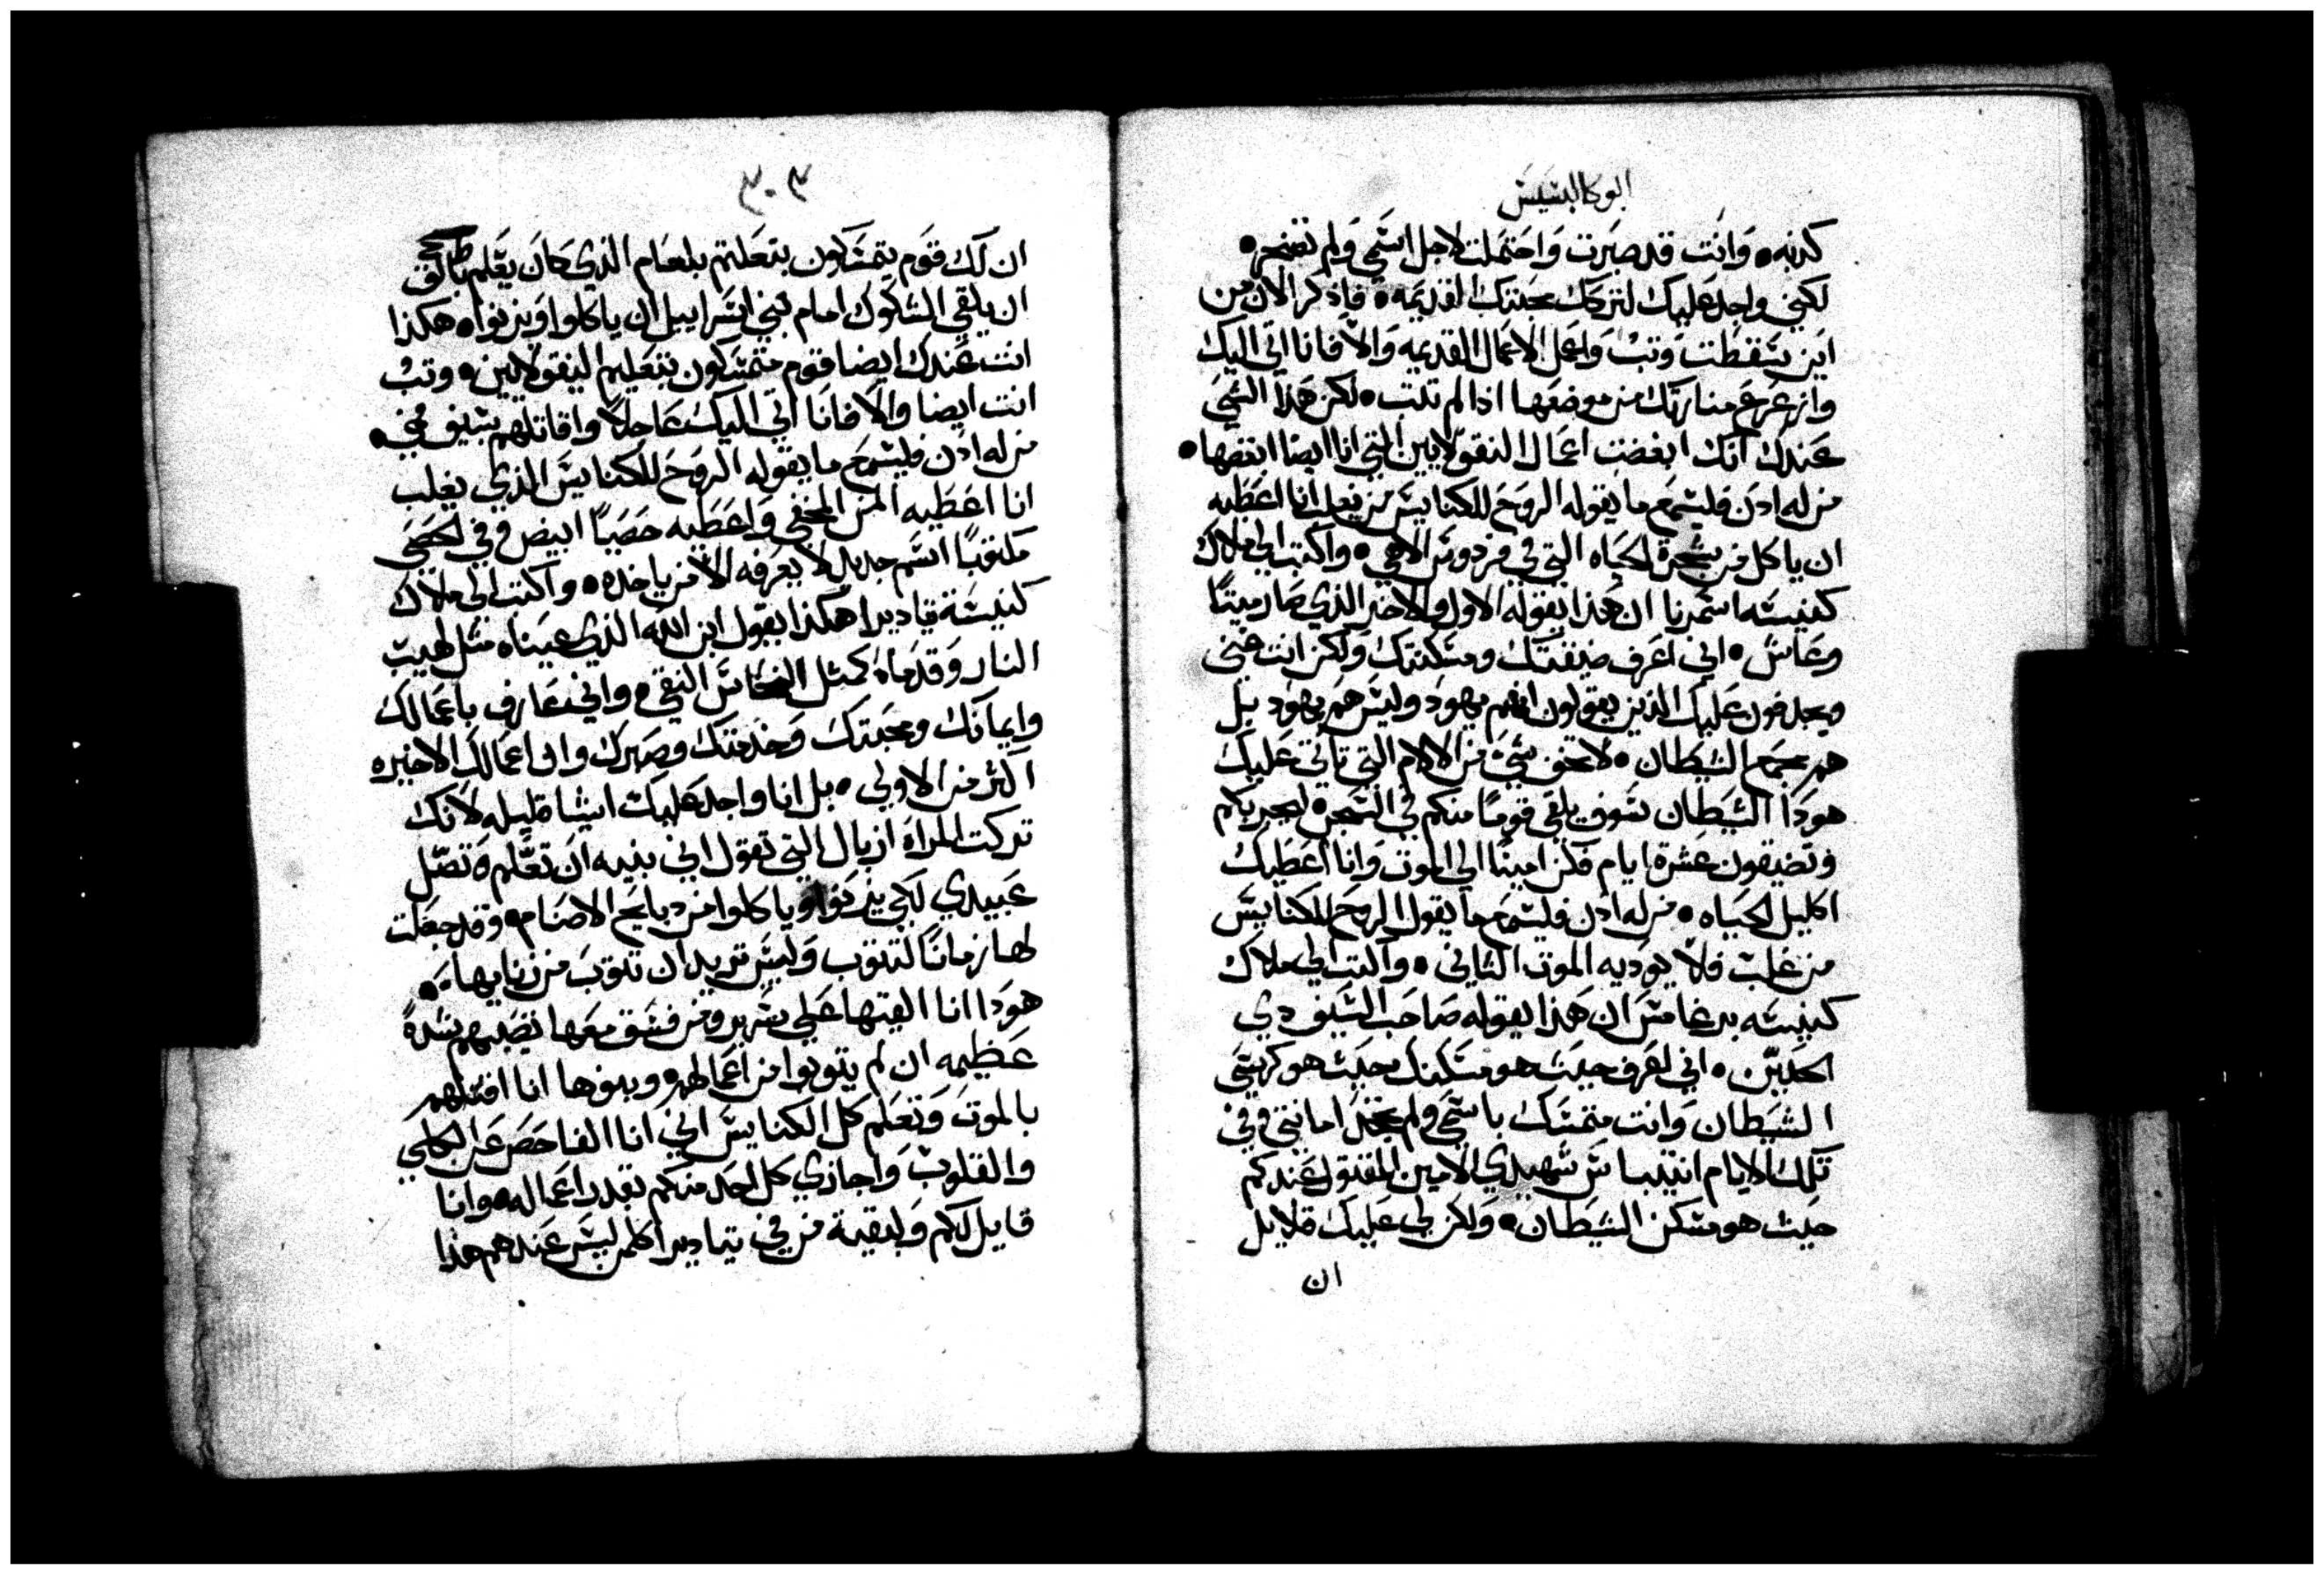 ابوكالبسيس
كدبه • وانت قد صبرت واحتملت لاجل اسمي ولم تضجر •
لكني واجد عليك لتركك محبتك القديمه • فاذكر الان من
اين سقطت وتب واعمل الاعمال القديمه والا فانا اتي اليك
وازعزع منارتك من موضعها اذا لم تتب • لكن هذا الشي
عندك انك ابغضت اعمال النقولايين التي انا ايضا ابغضها •
من له ادن فليسمع ما يقوله الروح للكنايس من يغلب انا اعطيه
ان ياكل من شجرة الحياه التي في فردوس الاهي • واكتب الي ملاك
كنيسة اسمرنا ان هذا يقوله الاول والاخر الذي صار ميتا
وعاش • اني اعرف ضيقتك ومسكنتك ولكن انت غني
ويجدفون عليك الذين يقولون انهم يهود وليس هم يهود بل
هم مجمع الشيطان • لا تخف شي من الالام التي تاتي عليك
هودا الشيطان سوف يلقي قوما منكم في السجن ليجربكم
وتضيقون عشرة ايام فكن امينا الي الموت وانا اعطيك
اكليل الحياه • من له ادن فليسمع ما يقول الروح للكنايس
من غلب فلا يوديه الموت الثاني • واكتب الي ملاك
كنيسه برغامس ان هذا يقوله صاحب السيف دي
الحدين • اني اعرف حيث هو مسكنك حيث هو كرسي
الشيطان وانت متمسك باسمي ولم تجحد امانتي وفي
تلك الايام انتيباس شهيدي الامين المقتول عندكم
حيث هو مسكن الشيطان • ولكن لي عليك قلايل
ان
٣٠٣
ان لك قوم يتمسكون بتعليم بلعام الذي كان يعلم بالاق
ان يلقي الشكوك امام بني اسراييل ان ياكلوا ويزنوا • هكذا
انت عندك ايضا قوم متمسكون بتعليم النيقولايين • وتب
انت ايضا والا فانا اتي اليك عاجلا واقاتلهم بسيف فمي •
من له ادن فليسمع ما يقوله الروح للكنايس الذي يغلب
انا اعطيه المن المخفي واعطيه حصيا ابيض وفي الحصي
مكتوبا اسم جديد لا يعرفه الا من ياخده • واكتب الي ملاك
كنيسة تياديرا هكذا يقول ابن الله الذي عيناه مثل لهيب
النار وقدماه كمثل النحاس النقي • واني عارف باعمالك
وايمانك ومحبتك وخدمتك وصبرك وان اعمالك الاخيره
اكثر من الاولي • بل انا واجد عليك اشيا قليله لانك
تركت المراه ازبال التي تقول اني نبيه ان تعلم وتضل
عبيدي لكي يزنوا وياكلوا من دبايح الاصنام • وقد جعلت
لها زمانا لتتوب وليس تريد ان تتوب من زنايها •
هودا انا القيها علي سرير ومن فسق معها نصيبهم بشدة
عظيمه ان لم يتوبوا من اعمالهم • وبنوها انا اقتلهم
بالموت وتعلم كل الكنايس اني انا الفاحص عن الكلي
والقلوب واجازي كل احد منكم بقدر اعماله • وانا
قايل لكم ولبقية من في تياديرا كلمن ليس عندهم هذا